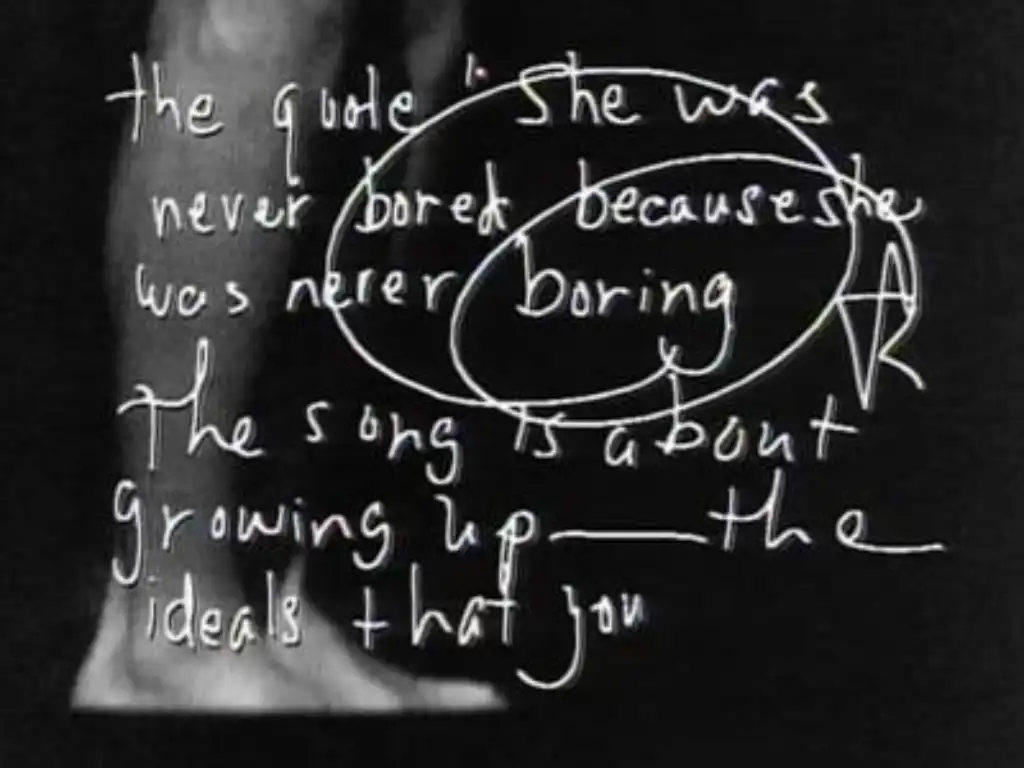 the quote " she was
never bored because she
was never boring
The song is about
growing up — the
ideals that you